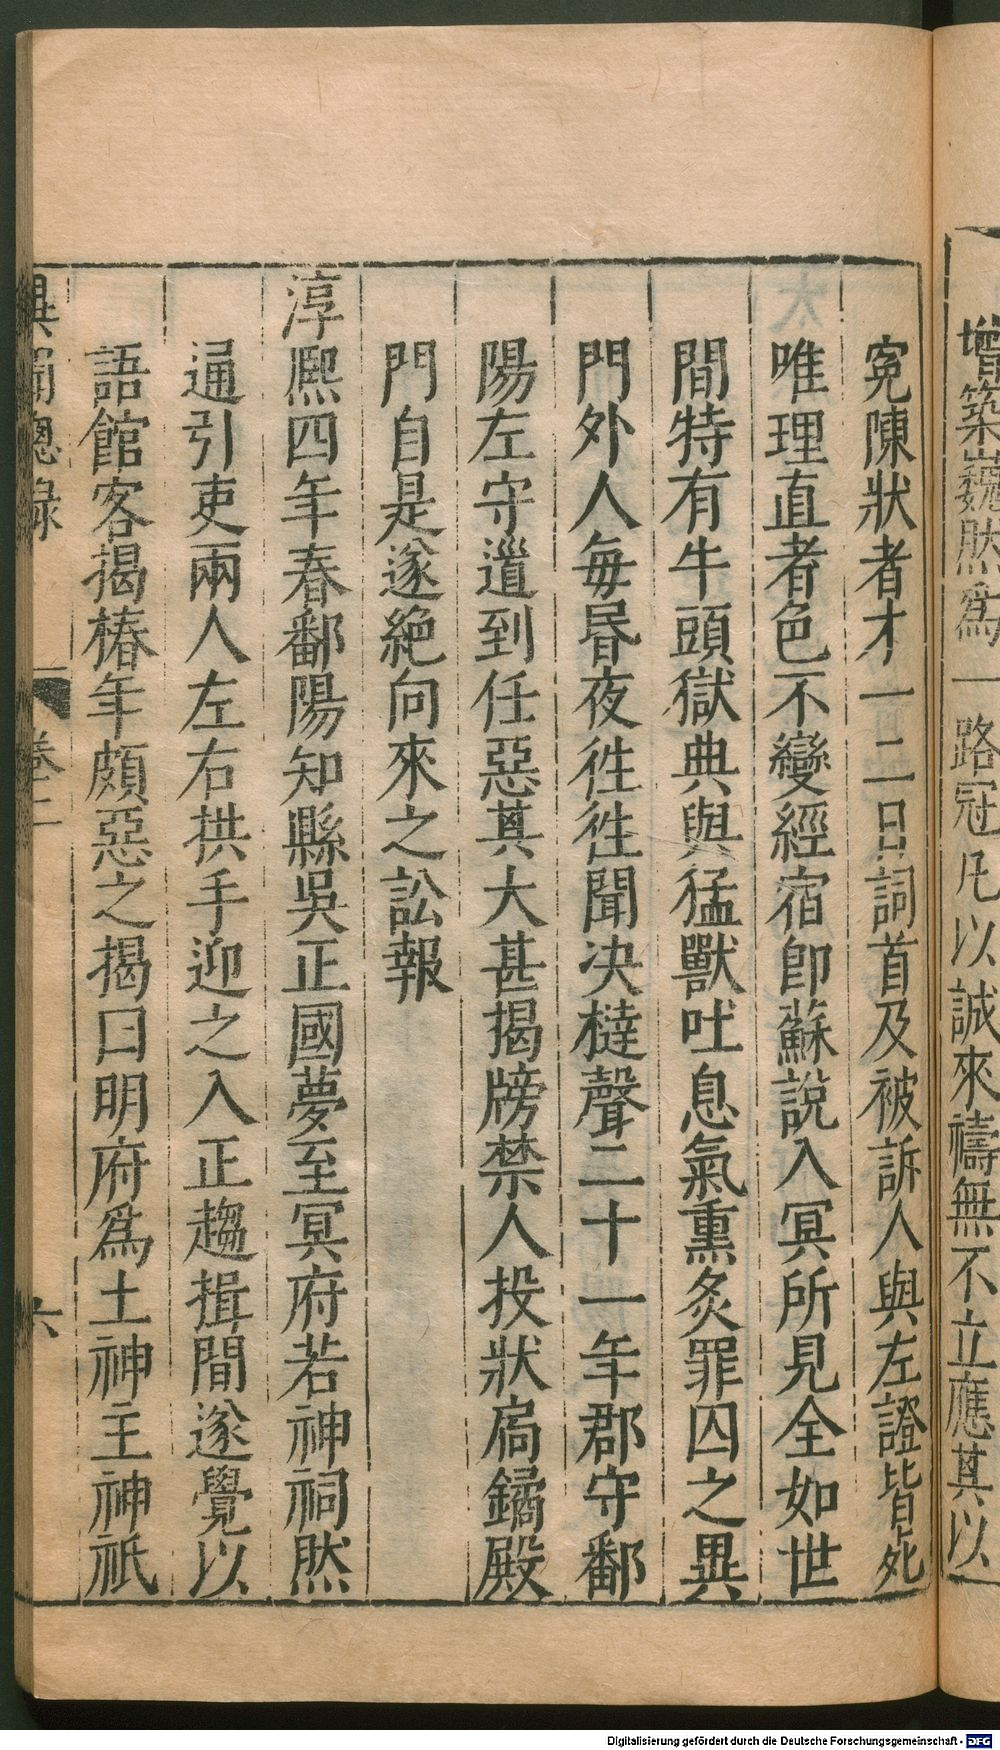 增築巍然爲一路冠凡以誠來禱無不立應其以
寃陳狀者才一二日詞首及被訴人與左證皆死
唯理直者色不變經宿卽蘇說入冥所見全如世
間特有牛頭獄典與猛獸吐息氣熏炙罪囚之異
門外人每昬夜徃徃聞決撻聲二十一年郡守鄱
陽左守道到任惡其大甚揭牓禁人投狀扃鐍殿
門自是遂絕向來之訟報
淳熈四年春鄱陽知縣吳正國夢至冥府若神祠然
通引吏兩人左右拱手迎之入正趨揖間遂覺以
語館客揭椿年頗惡之揭曰明府爲土神主神祇
異聞總錄 卷二 六
Digitalisierung gefördert durch die Deutsche Forschungsgemeinschaft - DFG